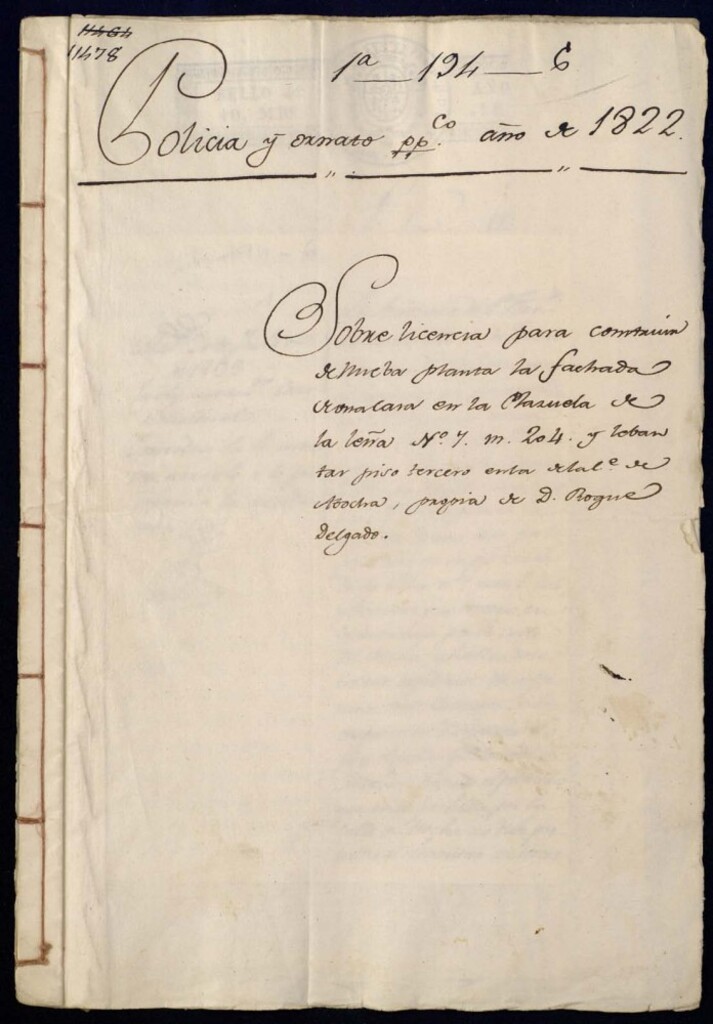 11478
1ª — 194 — 6
Policia y ornato pp.co año de 1822.
Sobre licencia para construir
de nueba planta la fachada
de una casa en la Plazuela de
la leña Nº 7. m. 204. y leban
tar piso tercero en la de la le. de
Atocha, propia de D. Roque
Delgado.